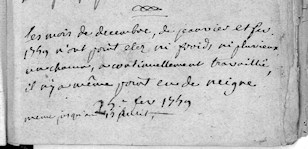 Les mois de decembre, de janvier et fev.
1759 n'ont point etez ni froids ni pluvieux
on a continuellement travaillé,
il n'y a même point eu de neige,
25 fev 1759
meme jusqu'au 15 avril.